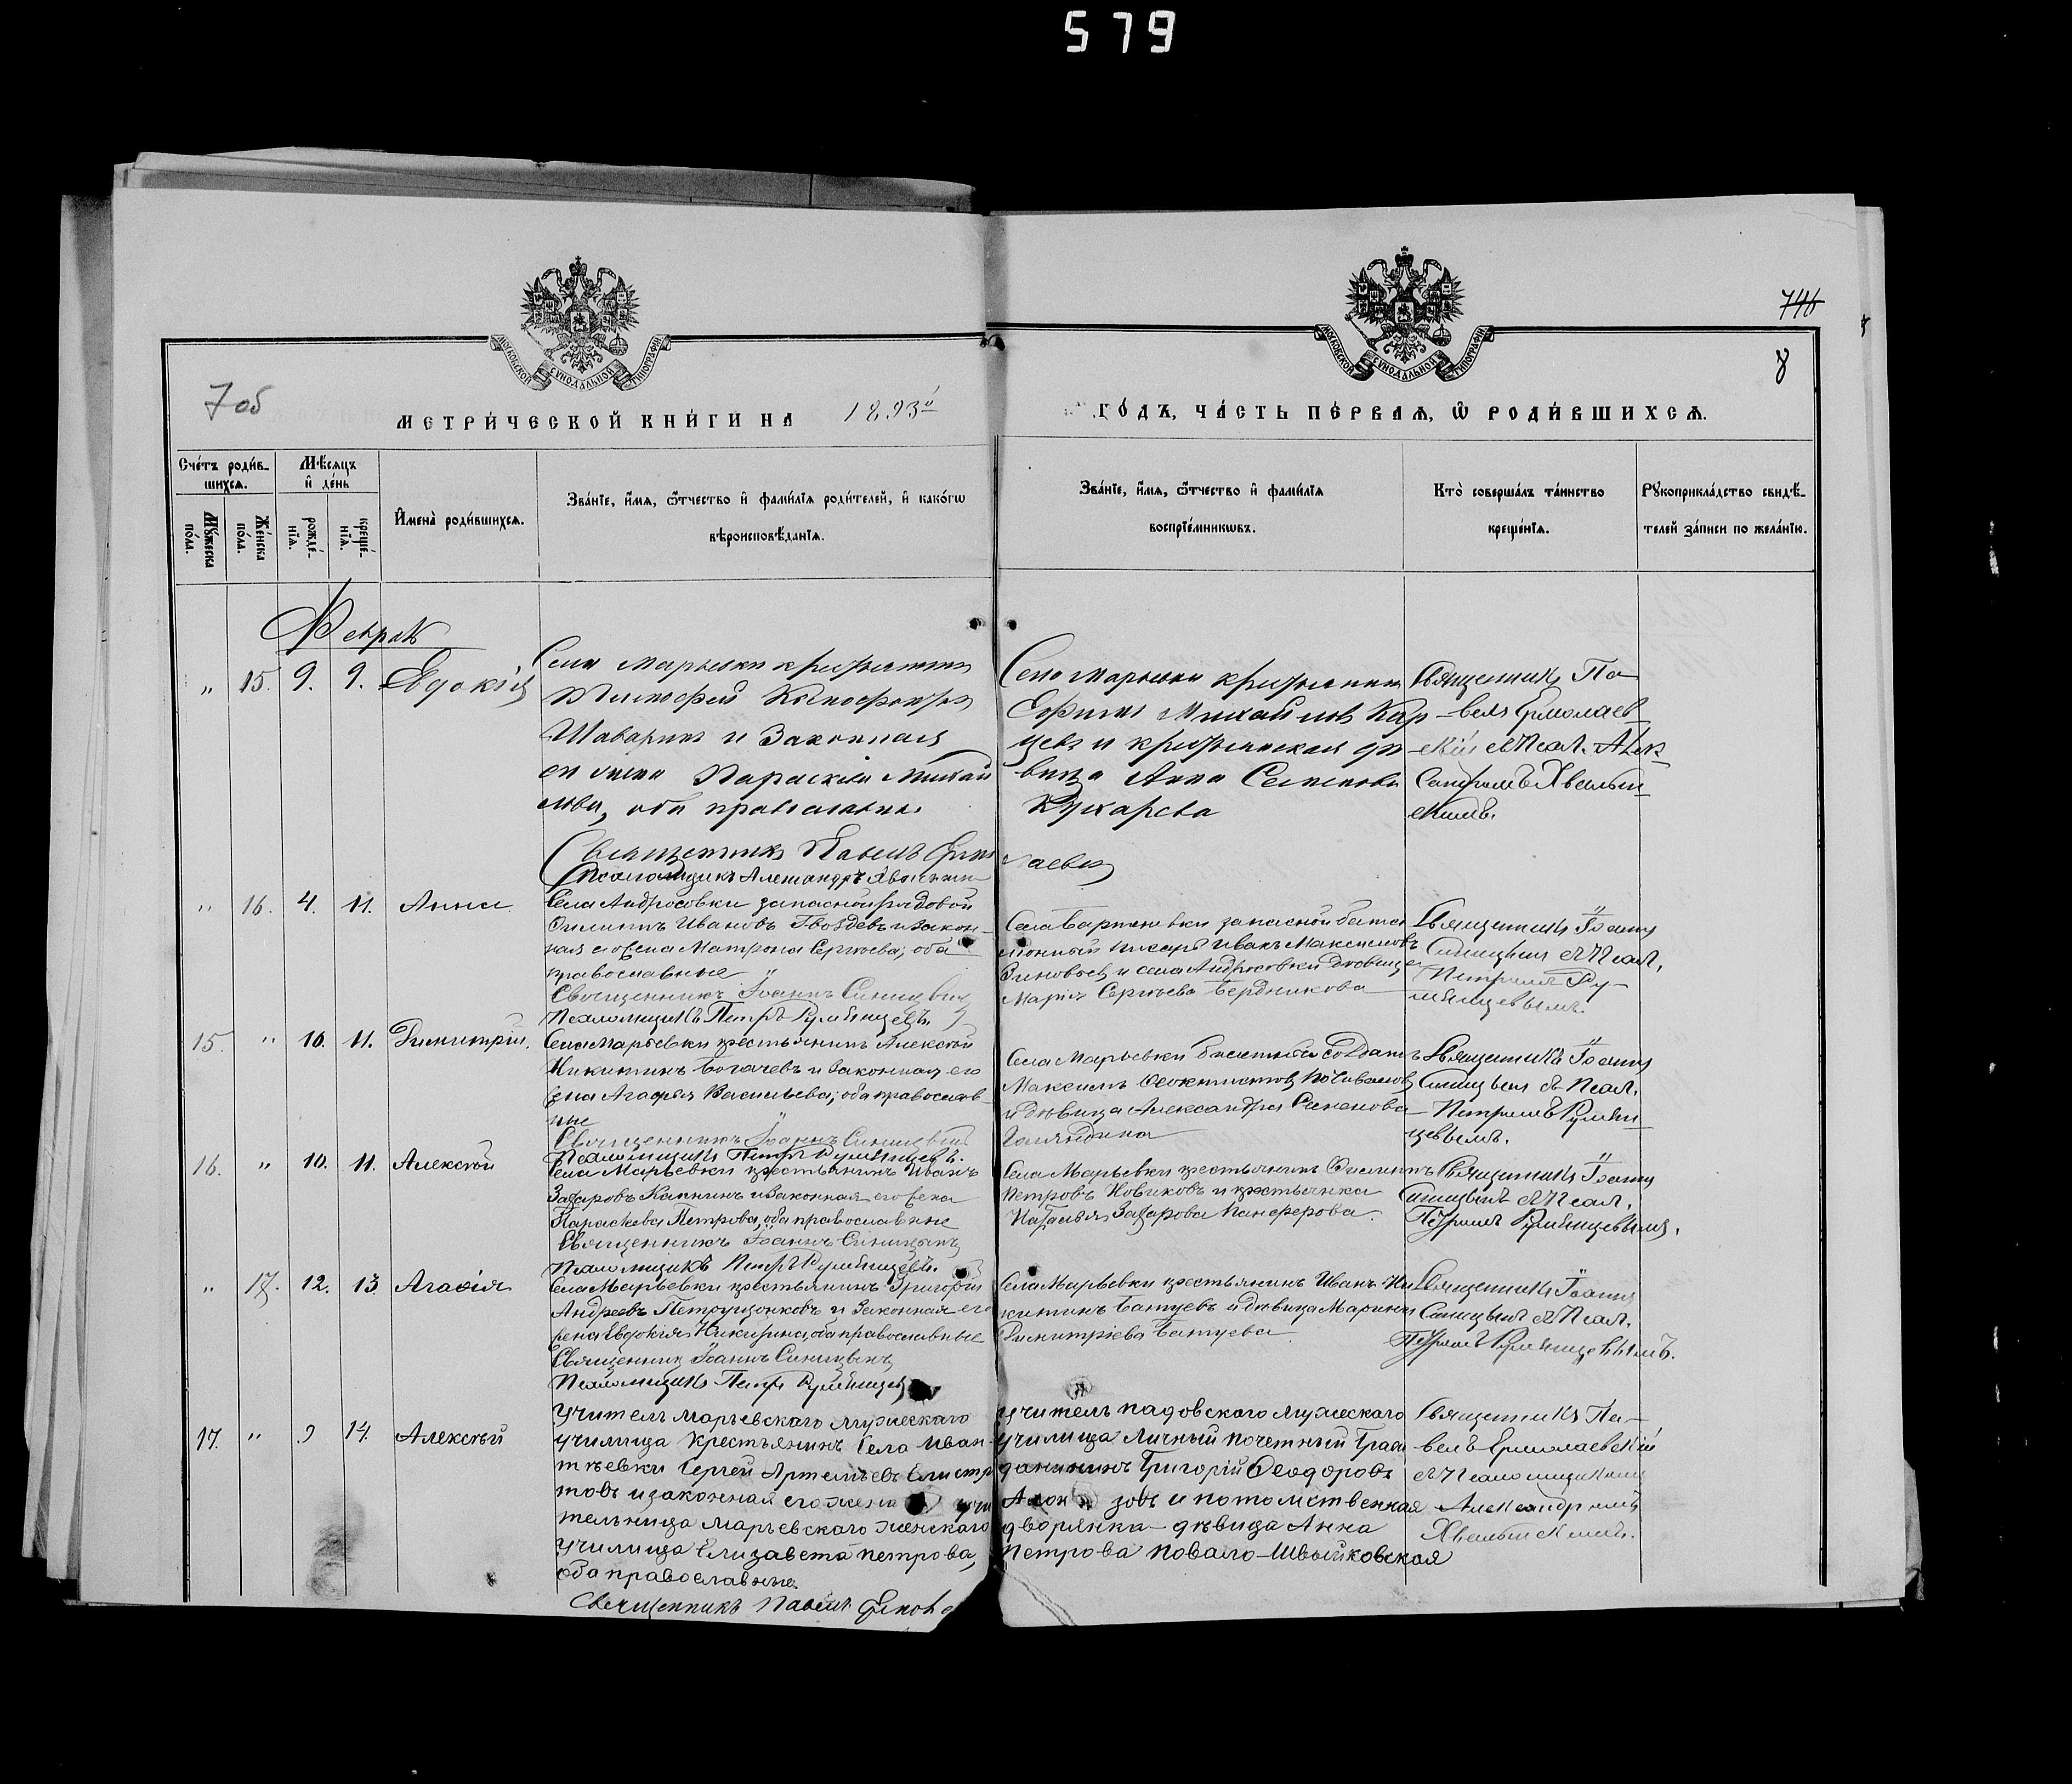 579
746
8
7 об
МОСКОВСКОЙ СѴНОДАЛЬНОЙ ТИПОГРАФІИ
МОСКОВСКОЙ СѴНОДАЛЬНОЙ ТИПОГРАФІИ
МЕТРИ́ЧЕСКОЙ КНИ́ГИ НА 1893й
ГО́ДЪ, ЧА́СТЬ ПЕ́РВАЯ, Ѡ РОДИ́ВШИХСЯ.
Сче́тъ роди́в-
шихся.
Мꙋ́жеска
по́ла.
Же́нска
по́ла.
Мѣ́сяцъ
и де́нь
рожде́-
нїя.
креще́-
нїя.
И҆мена̀ роди́вшихся.
Зва́нїе, и҆́мя, ѻ҆́тчество и҆ фамѝлїя роди́телей, и҆ како́гѡ
вѣроисповѣ́данїя.
Зва́нїе, и҆́мя, ѻ҆́тчество и҆ фамѝлїя
воспрїе́мникѡвъ.
Кто̀ соверша́лъ та́инство
креще́нїя.
Рꙋкоприкла́дство свидѣ́-
телей за́писи по жела́нїю.
Февраль
" 15. 9. 9. Евдокія
Села Марьевки крестьянинъ
Ксенофонтовъ
Шаваринъ и законная
его жена Параскева Михай
лова, оба православные
Села Марьевки крестьянинъ
Ефимъ Михайловъ Кар
цевъ и крестьянская дѣ
вица Анна Семенова
Кухарева
Священникъ Па-
велъ Ермолаев-
скій съ Псал. Алек-
сандромъ Хвалын-
скимъ.
Священникъ Павелъ Ермо
лаевъ
Псаломщикъ Александръ Хвалынск
" 16. 4. 11. Анна
Села Андросовки запасной рядовой
Филиппъ Ивановъ Гвоздевъ и закон-
ная его жена Матрона Сергѣева; оба
православные
Священникъ Іоаннъ Синицынъ
Псаломщикъ Петръ Румянцевъ.
запасной батал
іонный писарь Иванъ Максимовъ
Зиновьев и села Андросовки дѣвица
Марія Сергѣева Бердникова
Священникъ Іоаннъ
Синицынъ съ Псал.
Петромъ Ру-
мянцевымъ.
15. " 10. 11. Димитрій.
Села Марьевки крестьянинъ Алексѣй
Никитинъ Богачевъ и законная его
жена Агафья Васильева; оба православ-
ные
Священникъ Іоаннъ Синицынъ
Псаломщикъ Петръ Румянцевъ.
Села Марьевки билетный солдатъ
Максимъ Ѳеоктистовъ
и дѣвица Александра Симеонова
Голяндина
Священникъ Іоаннъ
Синицынъ съ Псал.
Петромъ Румян-
цевымъ.
16. " 10. 11. Алексѣй
Села Марьевки крестьянинъ Иванъ
Захаровъ Капнинъ и законная его жена
Параскева Петрова, оба православные
Священникъ Іоаннъ Синицынъ
Псаломщикъ Петръ Румянцевъ.
Села Марьевки крестьянинъ Филиппъ
Петровъ Новиковъ и крестьянка
Наталья Захарова Панферова.
Священникъ Іоаннъ
Синицынъ съ Псал.
Петромъ Румянцевымъ.
" 17. 12. 13. Агафія
Села Марьевки крестьянинъ Григорій
Андреевъ Петрушонковъ и законная его
жена Евдокія Никифорова, оба православные
Священникъ Іоаннъ Синицынъ
Псаломщикъ Петръ Румянцевъ
Села Марьевки крестьянинъ Иванъ Ни
китинъ Бантуевъ и дѣвица Марина
Димитріева Бантуева
Священникъ Іоаннъ
Синицынъ съ Псал.
Петромъ Румянцевымъ.
17. " 9 14. Алексѣй
Учитель Марьевскаго мужескаго
училища крестьянинъ села Иван-
тѣевки Сергей Артемьевъ Елистр
товъ и законная его жена учи
тельница Марьевскаго женскаго
училища Елизавета Петрова,
оба православные.
Священникъ Павелъ
Учитель Падовскаго мужескаго
училища личный почетный граж
данинъ Григорій Ѳеодоровъ
и потомственная
дворянка - дѣвица Анна
Петрова Повало-Швыйковская
Священникъ Па-
велъ Ермолаевскій
съ Псаломщикомъ
Александромъ
Хвалынскимъ.